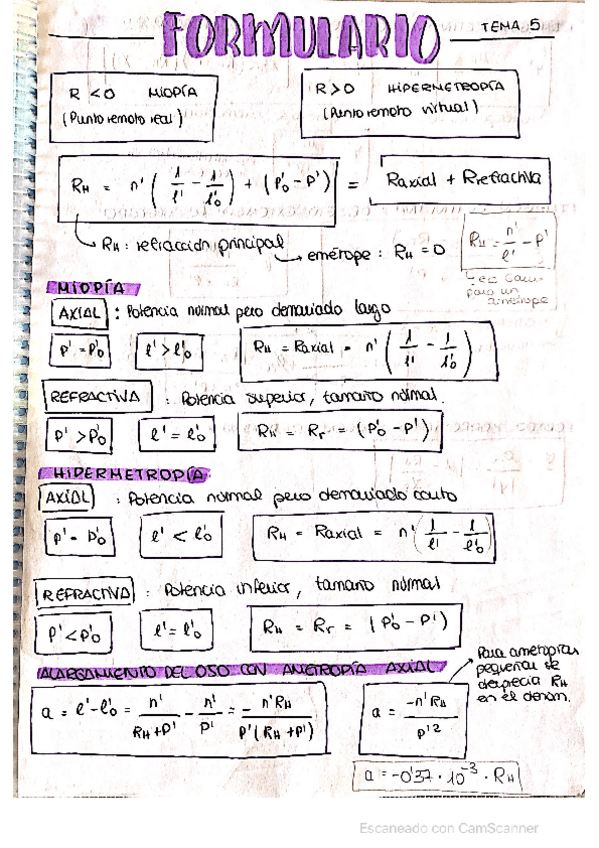 FORMULARIO TEMA 5
R < 0 MIOPÍA
(Punto remoto real)
R > 0 HIPERMETROPÍA
(Punto remoto virtual)
R_H = n' ( 1/l' - 1/l'o ) + (P'o - P') = Raxial + Rrefractiva
R_H : refracción principal
emétrope : R_H = 0
R_H = n'/l' - P'
para un
amétrope
MIOPÍA
AXIAL : Potencia normal pero demasiado largo
P' = P'o
l' > l'o
R_H = Raxial = n' ( 1/l' - 1/l'o )
REFRACTIVA : Potencia superior, tamaño normal.
P' > P'o
l' = l'o
R_H = Rr = (P'o - P')
HIPERMETROPÍA
AXIAL : Potencia normal pero demasiado corto
P' = P'o
l' < l'o
R_H = Raxial = n' ( 1/l' - 1/l'o )
REFRACTIVA : Potencia inferior, tamaño normal
P' < P'o
l' = l'o
R_H = Rr = (P'o - P')
ALARGAMIENTO DEL OJO CON AMETROPÍA AXIAL
Para ametropías
pequeñas se
desprecia R_H
en el denom.
a = l' - l'o = n'/(R_H + P') - n'/P' = - n'R_H/(P'(R_H + P'))
a = -n'R_H/P'²
a = -0'37 · 10⁻³ · R_H
Escaneado con CamScanner